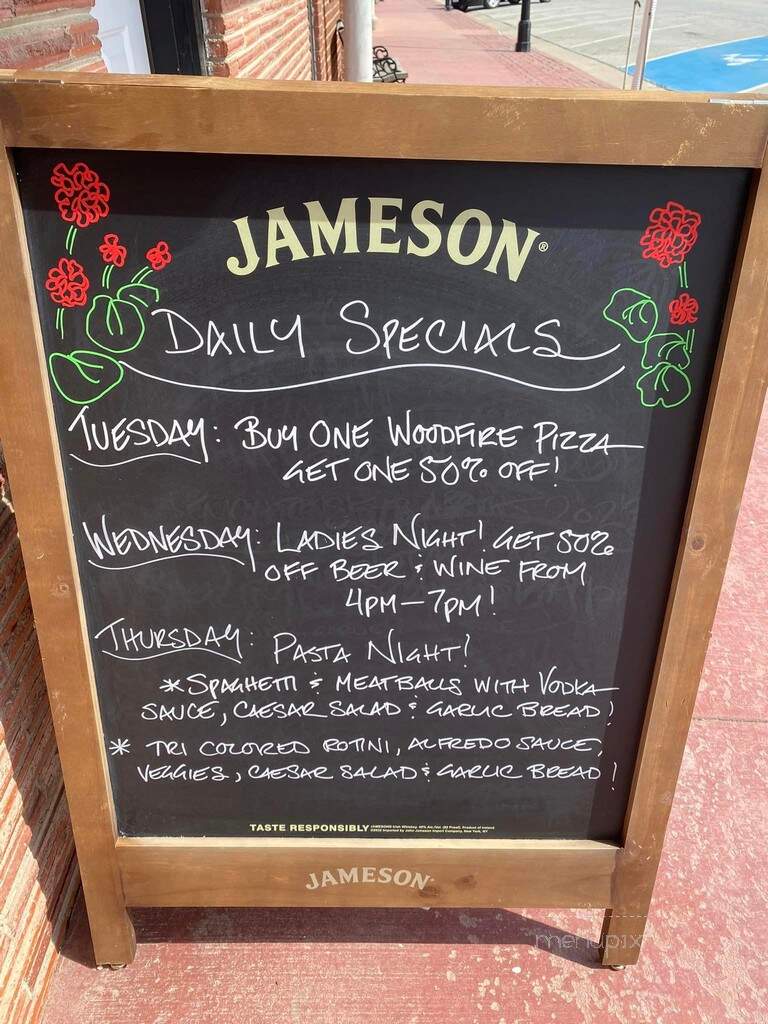 JAMESON®
DAILY SPECIALS
TUESDAY: BUY ONE WOODFIRE PIZZA
GET ONE 50% OFF!
WEDNESDAY: LADIES NIGHT! GET 50%
OFF BEER & WINE FROM
4PM-7PM!
THURSDAY: PASTA NIGHT!
* SPAGHETTI & MEATBALLS WITH VODKA
SAUCE, CAESAR SALAD & GARLIC BREAD!
* TRI COLORED ROTINI, ALFREDO SAUCE,
VEGGIES, CAESAR SALAD & GARLIC BREAD!
TASTE RESPONSIBLY
JAMESON
menupix